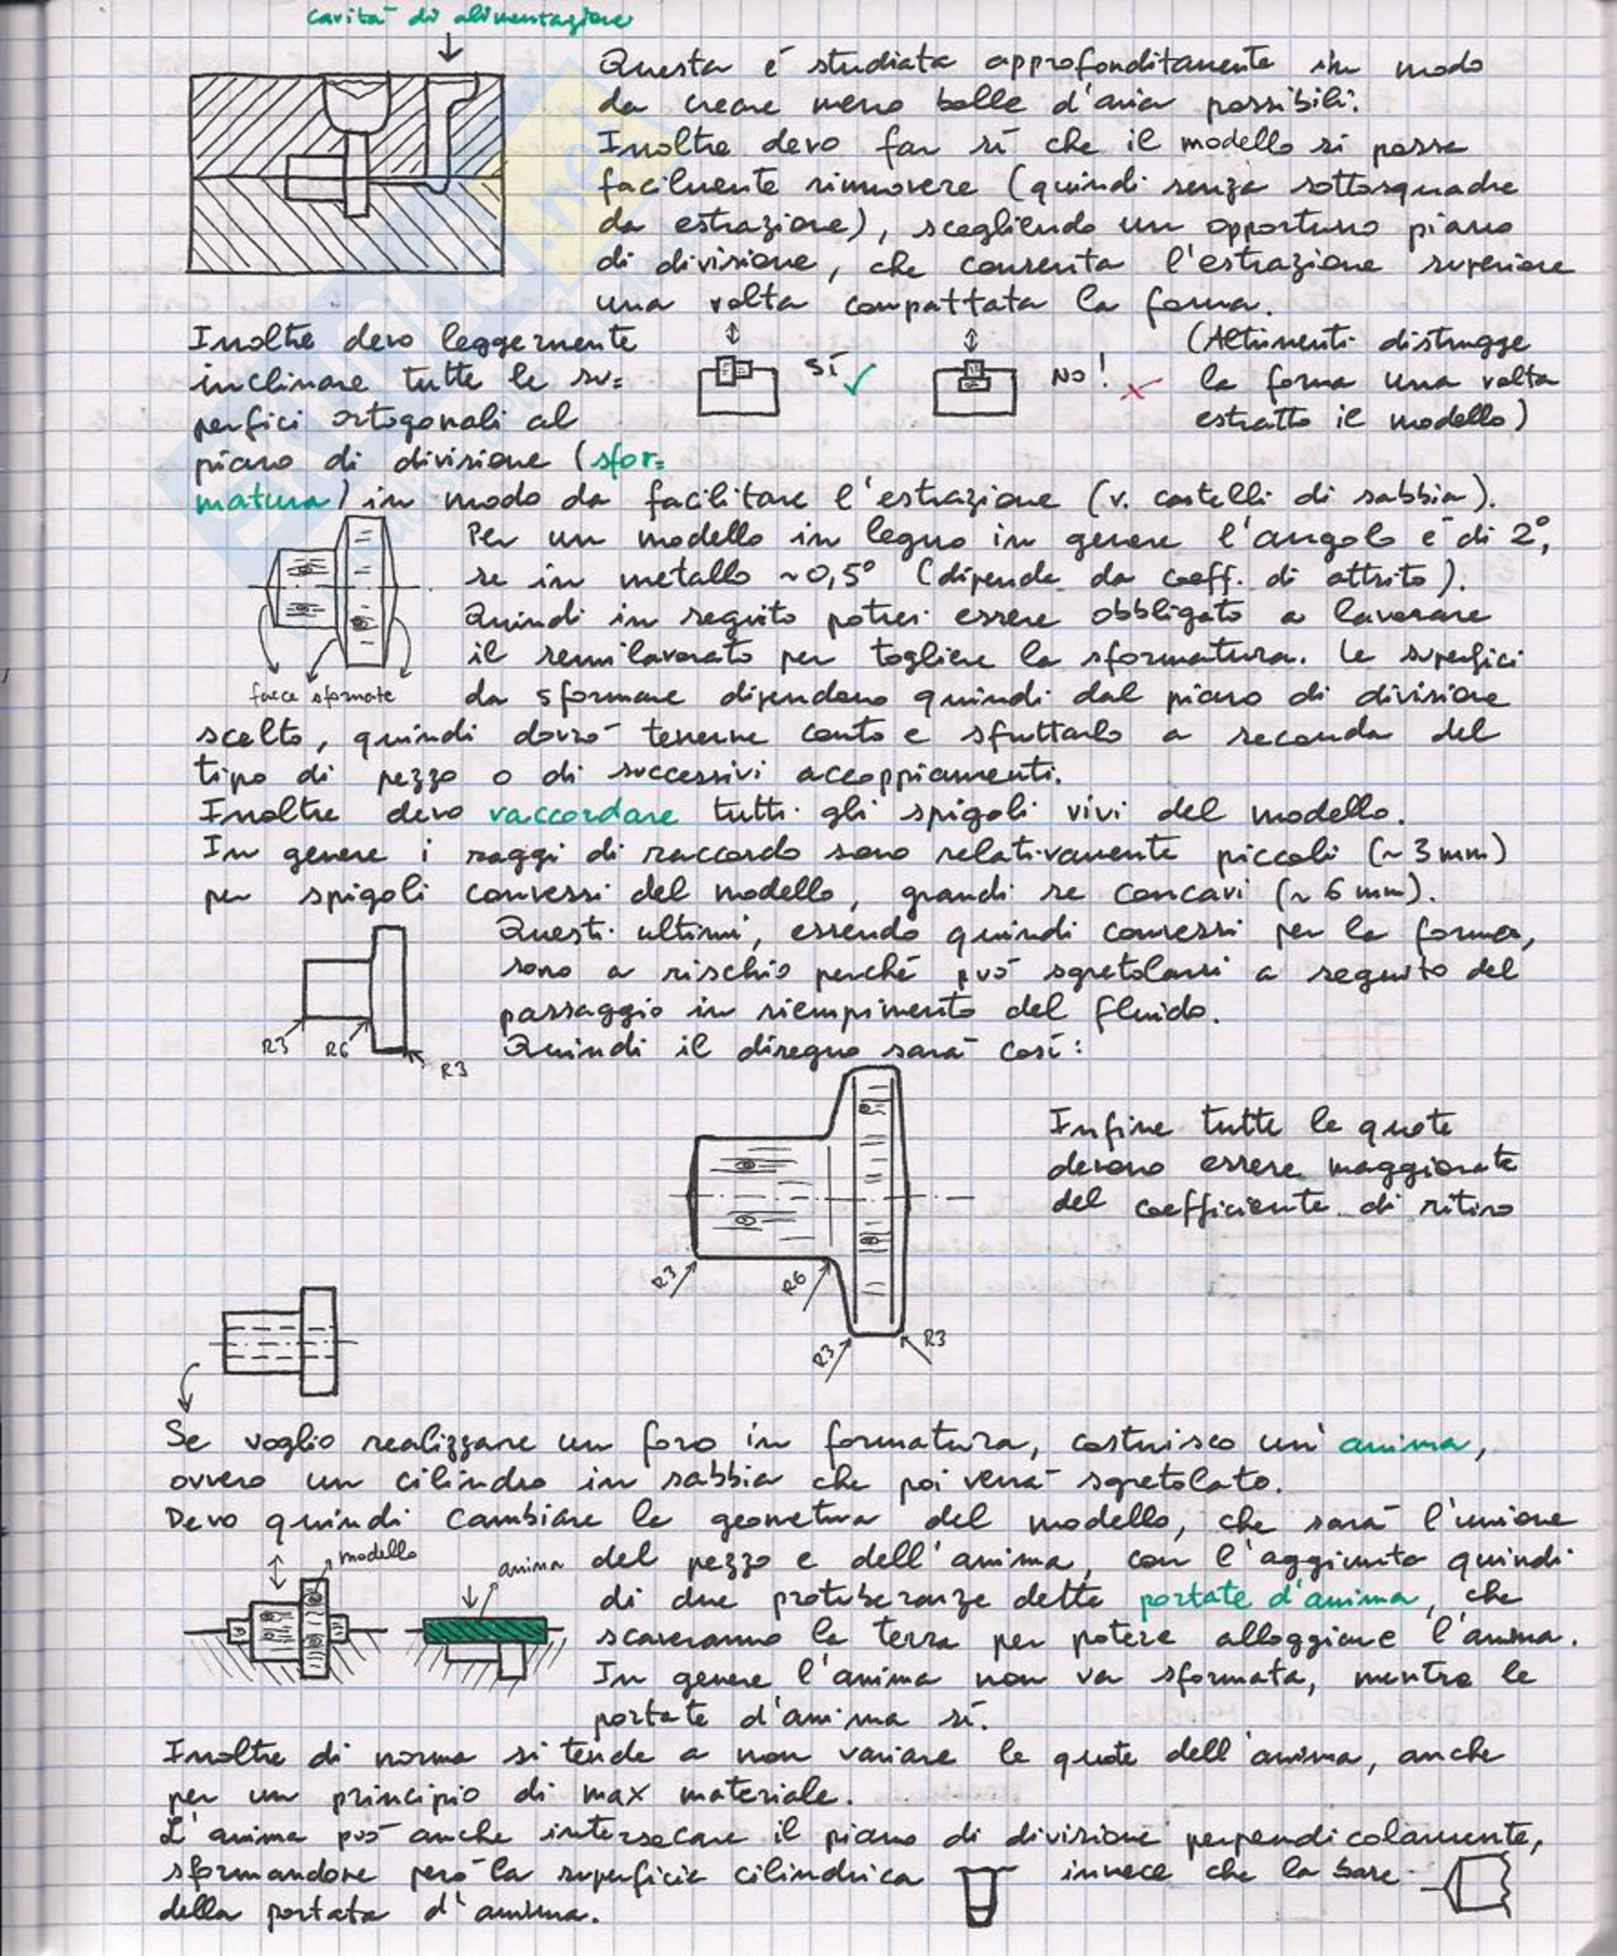 cavità di alimentazione
Questa é studiata approfonditamente in modo
da creare meno bolle d'aria possibili.
Inoltre devo far sí che il modello si possa
facilmente rimuovere (quindi senza sottosquadre
da estrazione), scegliendo un opportuno piano
di divisione, che consenta l'estrazione superiore
una volta compattata la forma.
Inoltre devo leggermente
inclinare tutte le su=
perfici ortogonali al
piano di divisione (sfor=
matura) in modo da facilitare l'estrazione (v. castelli di sabbia).
SÍ
NO!
(Altrimenti distrugge
la forma una volta
estratto il modello)
Per un modello in legno in genere l'angolo é di 2°,
se in metallo ~0,5° (dipende da coeff. di attrito).
Quindi in seguito potrei essere obbligato a lavorare
il semilavorato per togliere la sformatura. Le superfici
facce sformate
da sformare dipendono quindi dal piano di divisione
scelto, quindi dovrò tenerne conto e sfruttarlo a seconda del
tipo di pezzo o di successivi accoppiamenti.
Inoltre devo raccordare tutti gli spigoli vivi del modello.
In genere i raggi di raccordo sono relativamente piccoli (~3mm)
per spigoli convessi del modello, grandi se concavi (~6mm).
Questi ultimi, essendo quindi convessi per la forma,
sono a rischio perché può sgretolarsi a seguito del
passaggio in riempimento del fluido.
Quindi il disegno sarà cosí:
R3 R6 R3
Infine tutte le quote
devono essere maggiorate
del coefficiente di ritiro
R3 R6
R3 R3
Se voglio realizzare un foro in formatura, costruisco un'anima,
ovvero un cilindro in sabbia che poi verrà sgretolato.
Devo quindi cambiare la geometria del modello, che sarà l'unione
modello
anima
del pezzo e dell'anima, con l'aggiunta quindi
di due protuberanze dette portate d'anima, che
scaveranno la terra per potere alloggiare l'anima.
In genere l'anima non va sformata, mentre le
portate d'anima sí.
Inoltre di norma si tende a non variare le quote dell'anima, anche
per un principio di max materiale.
L'anima può anche intersecare il piano di divisione perpendicolarmente,
sformandone però la superficie cilindrica invece che la base
della portata d'anima.